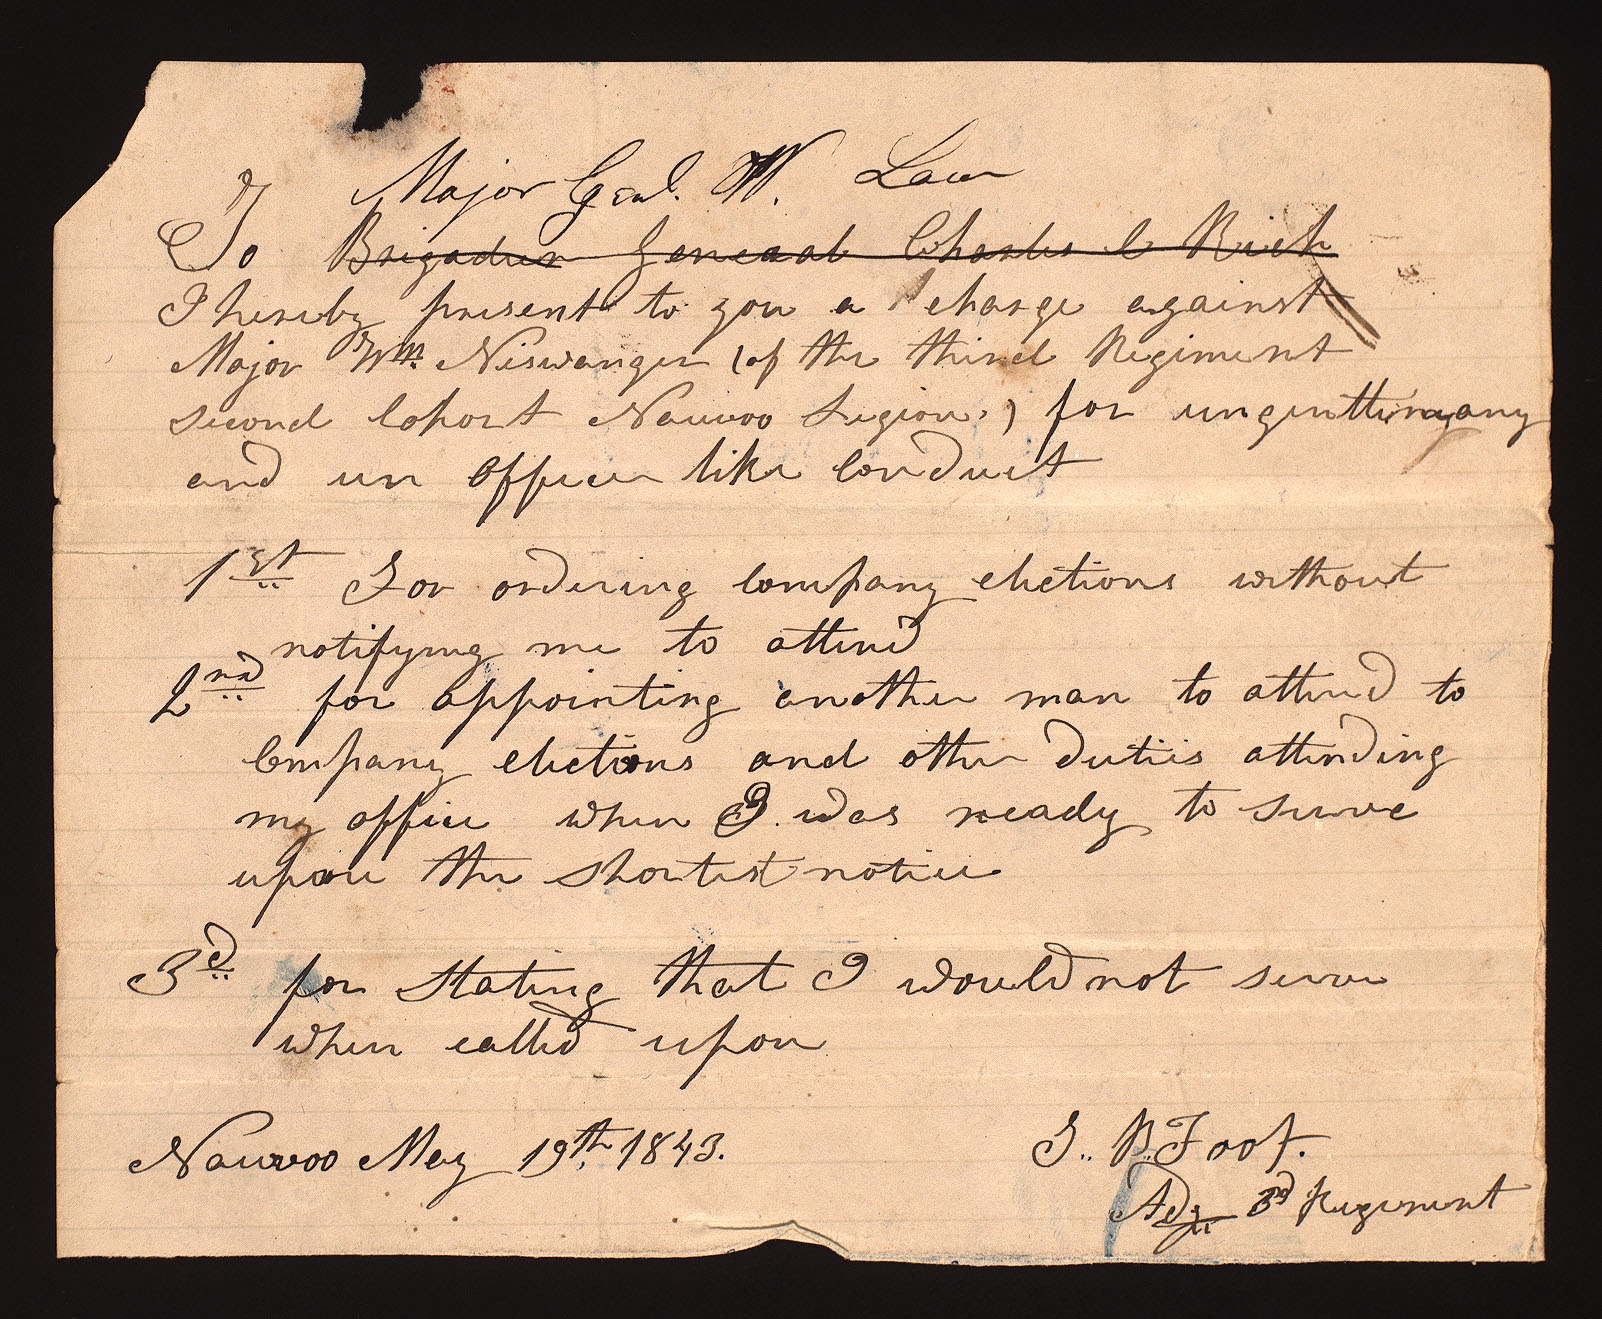 Major Genl. W. Law
To Brigadier General Charles C Rich
I hereby present to you a charge against
Major Wm. Niswanger (of the third Regiment
second Cohort Nauvoo Legion,) for
and un officer like conduct
1st For ordering company elections without
notifying me to attend
2nd for appointing another man to attend to
Company elections and other duties attending
my office when I was ready to serve
upon the shortest notice
3d for stating that I would not serve
when called upon
Nauvoo May 19th, 1843. S.. B. Foot.
Adjt 3d Regiment